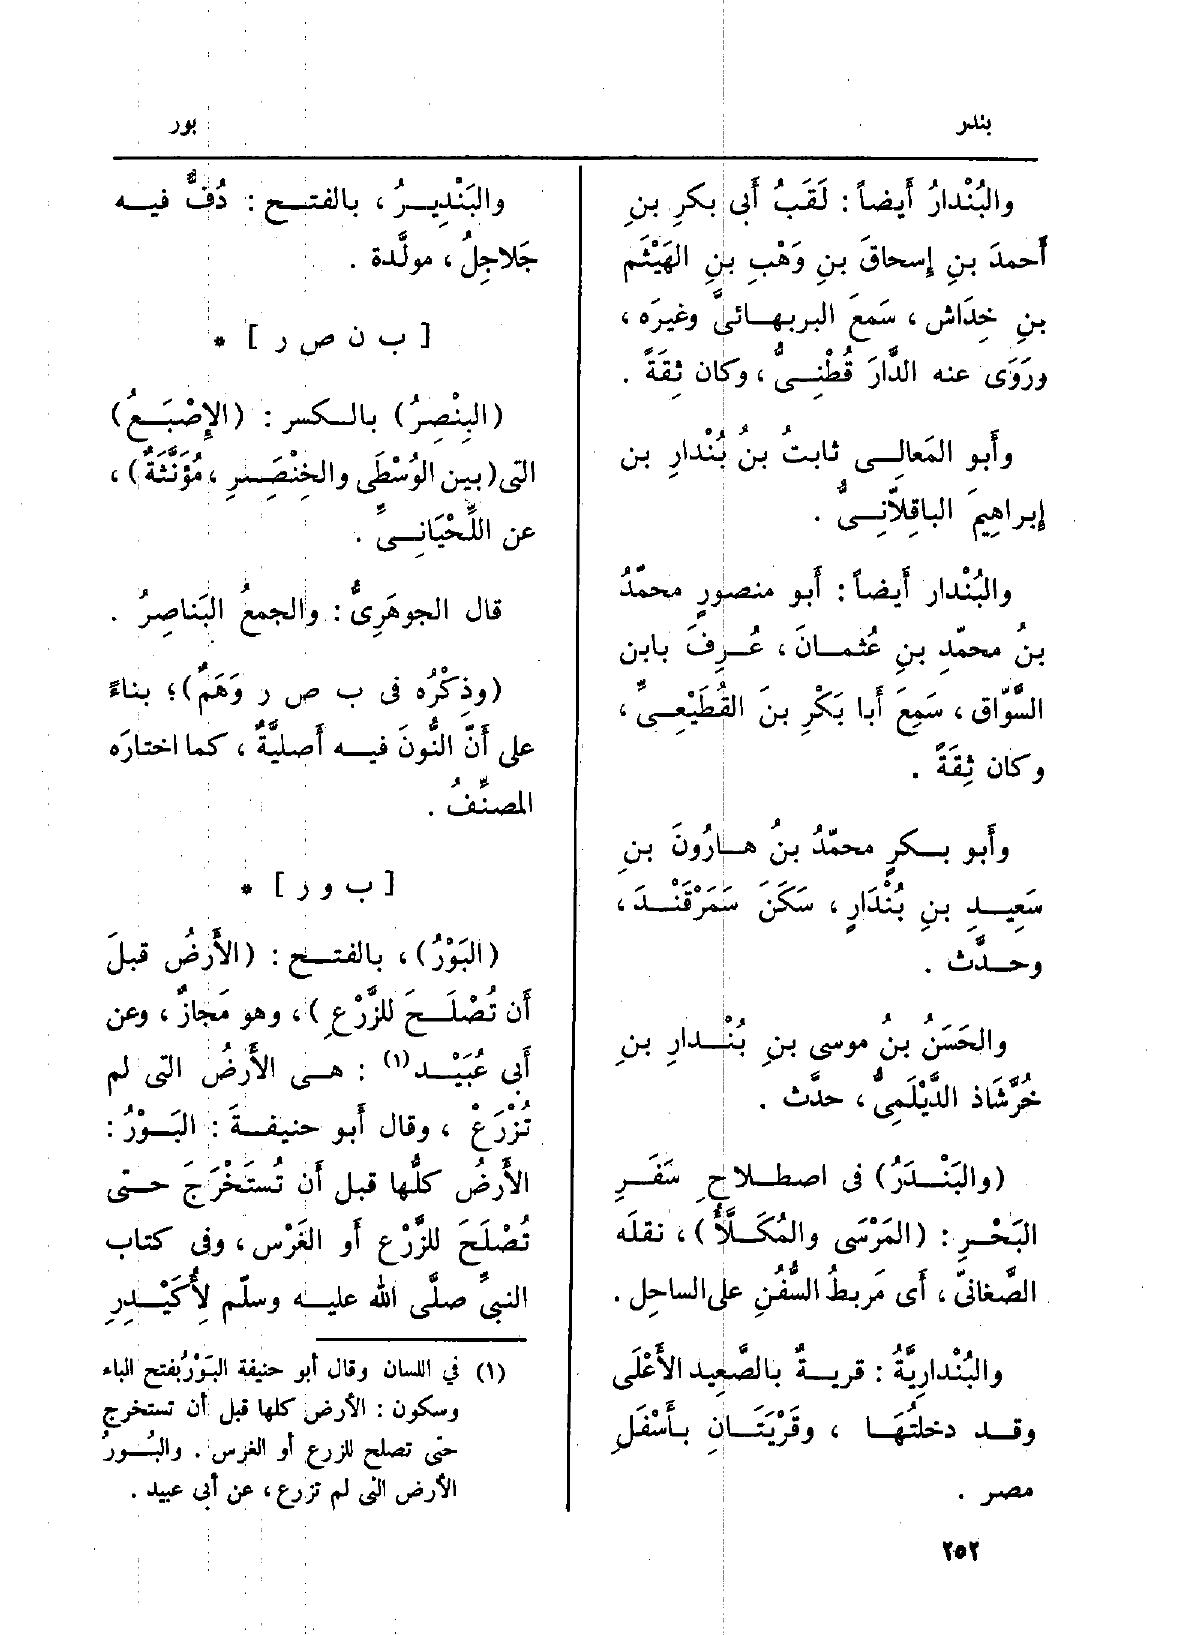 بندر
بور
والبُنْدارُ أَيضاً : لَقَبُ أَبى بكرِ بنِ
أَحمدَ بنِ إسحاقَ بنِ وَهْبِ بنِ الهَيْثَم
بنِ خِدَاش ، سَمعَ البربهـائىَّ وغيرَه ،
ورَوَى عنه الدَّارَ قُطْنِـىُّ ، وكان ثِقَةً .
وأَبو المَعالِـى ثابتُ بنُ بُنْدارِ بن
إبراهِيمَ الباقِلاَّنِـىُّ .
والبُنْدار أَيضاً : أَبو منصورٍ محمّدُ
بنُ محمّدِ بنِ عُثمـانَ ، عُـرِفَ بابن
السَّوّاق ، سَمِعَ أَبا بَكْرِ بنَ القُطَيْعِـىِّ ،
وكان ثِقَةً .
وأَبو بـكرٍ محمّدُ بنُ هـارُونَ بنِ
سَعِيـدِ بنِ بُنْدَارٍ ، سَكَنَ سَمَرْقَنْـدَ ،
وحـدَّث .
والحَسَنُ بنُ موسى بنِ بُنْـدارِ بنِ
خُرَّشَاذ الدَّيْلَمِىُّ ، حدَّث .
(والبَنْـدَرُ) فى اصطـلاحِ سَفَـرِ
البَحْـرِ : (المَرْسَى والمُكَـلَّأُ) ، نقلَه
الصَّغانىّ ، أَى مَربطُ السُّفُنِ على الساحل .
والبُنْدارِيَّةُ : قريـةٌ بالصَّعِيد الأَعْلَى
وقـد دخلتُهَـا ، وقَرْيَتَـانِ بـأَسْفَلِ
مصر .
والبَنْدِيـرُ ، بالفتـح : دُفٌّ فيـه
جَلاجِلُ ، مولَّدة .
[ ب ن ص ر ] *
(البِنْصِرُ) بالـكسر : (الإِصْبَـعُ)
التى (بين الوُسْطَى والخِنْصِـرِ ، مُؤَنَّثةٌ) ،
عن اللِّحْيَانِـىِّ .
قال الجوهَرِىُّ : والجمعُ البَناصِرُ .
(وذِكْرُه فى ب ص ر وَهَمٌ) ؛ بناءً
على أَنّ النُّونَ فيـه أَصليَّةٌ ، كما اختارَه
المصنِّفُ .
[ ب و ر ] *
(البَوْرُ) ، بالفتـح : (الأَرضُ قبلَ
أَن تُصْلَـحَ للزَّرْعِ ) ، وهو مَجازٌ ، وعن
أَبى عُبَيْـد (١) : هـى الأَرضُ التى لم
تُزْرَعْ ، وقال أَبو حنيفـةَ : البَـوْرُ :
الأَرضُ كلُّها قبل أَن تُستَخْرَجَ حـتى
تُصْلَحَ للزَّرْع أَو الغَرْس ، وفى كتاب
النبىِّ صلَّى الله عليـه وسلّم لِأُكَيْـدِرِ
(١) في اللسان وقال أبو حنيفة البَوْرُ بفتح الباء
وسكون : الأرض كلها قبل أن تستخرج
حتى تصلح للزرع أو الغرس . والبُـورُ
الأرض التى لم تزرع ، عن أبى عبيد .
٢٥٢